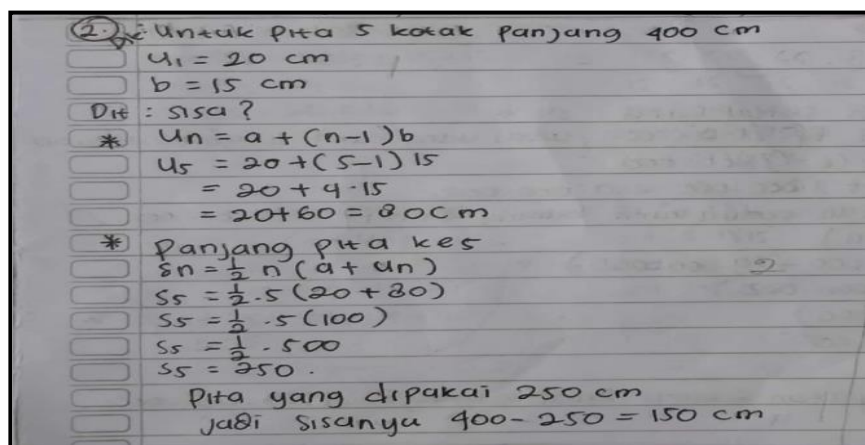 2. : Untuk pita 5 kotak panjang 400 cm
U₁ = 20 cm
b = 15 cm
Dit : sisa ?
* Un = a + (n-1) b
U₅ = 20 + (5-1) 15
= 20 + 4·15
= 20+60 = 80 cm
* Panjang pita ke 5
Sn = ½ n (a + Un)
S₅ = ½ . 5 (20 + 80)
S₅ = ½ . 5 (100)
S₅ = ½ . 500
S₅ = 250 .
Pita yang dipakai 250 cm
Jadi sisanya 400 - 250 = 150 cm